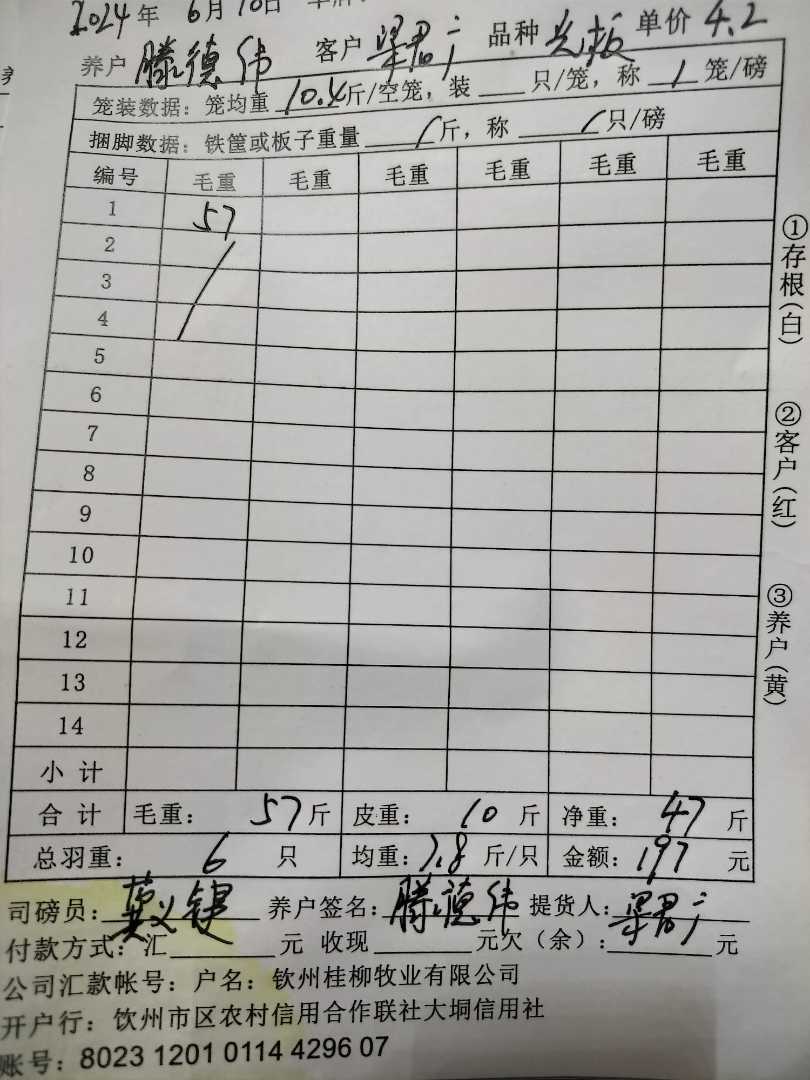 2024年 6月10日
养户 滕德伟 客户 梁君广 品种 光板 单价 4.2
笼装数据：笼均重 10.4斤/空笼，装 只/笼，称 1 笼/磅
捆脚数据：铁筐或板子重量 / 斤，称 / 只/磅
编号 毛重 毛重 毛重 毛重 毛重 毛重
1 57
2
3
4
5
6
7
8
9
10
11
12
13
14
小 计
合 计 毛重： 57 斤 皮重： 10 斤 净重： 47 斤
总羽重： 6 只 均重：7.8 斤/只 金额：197 元
司磅员： 养户签名：滕德伟 提货人：梁君广
付款方式：汇 元 收现 元欠（余）： 元
公司汇款帐号：户名：钦州桂柳牧业有限公司
开户行：钦州市区农村信用合作联社大垌信用社
账号：8023 1201 0114 4296 07
①存根（白）
②客户（红）
③养户（黄）